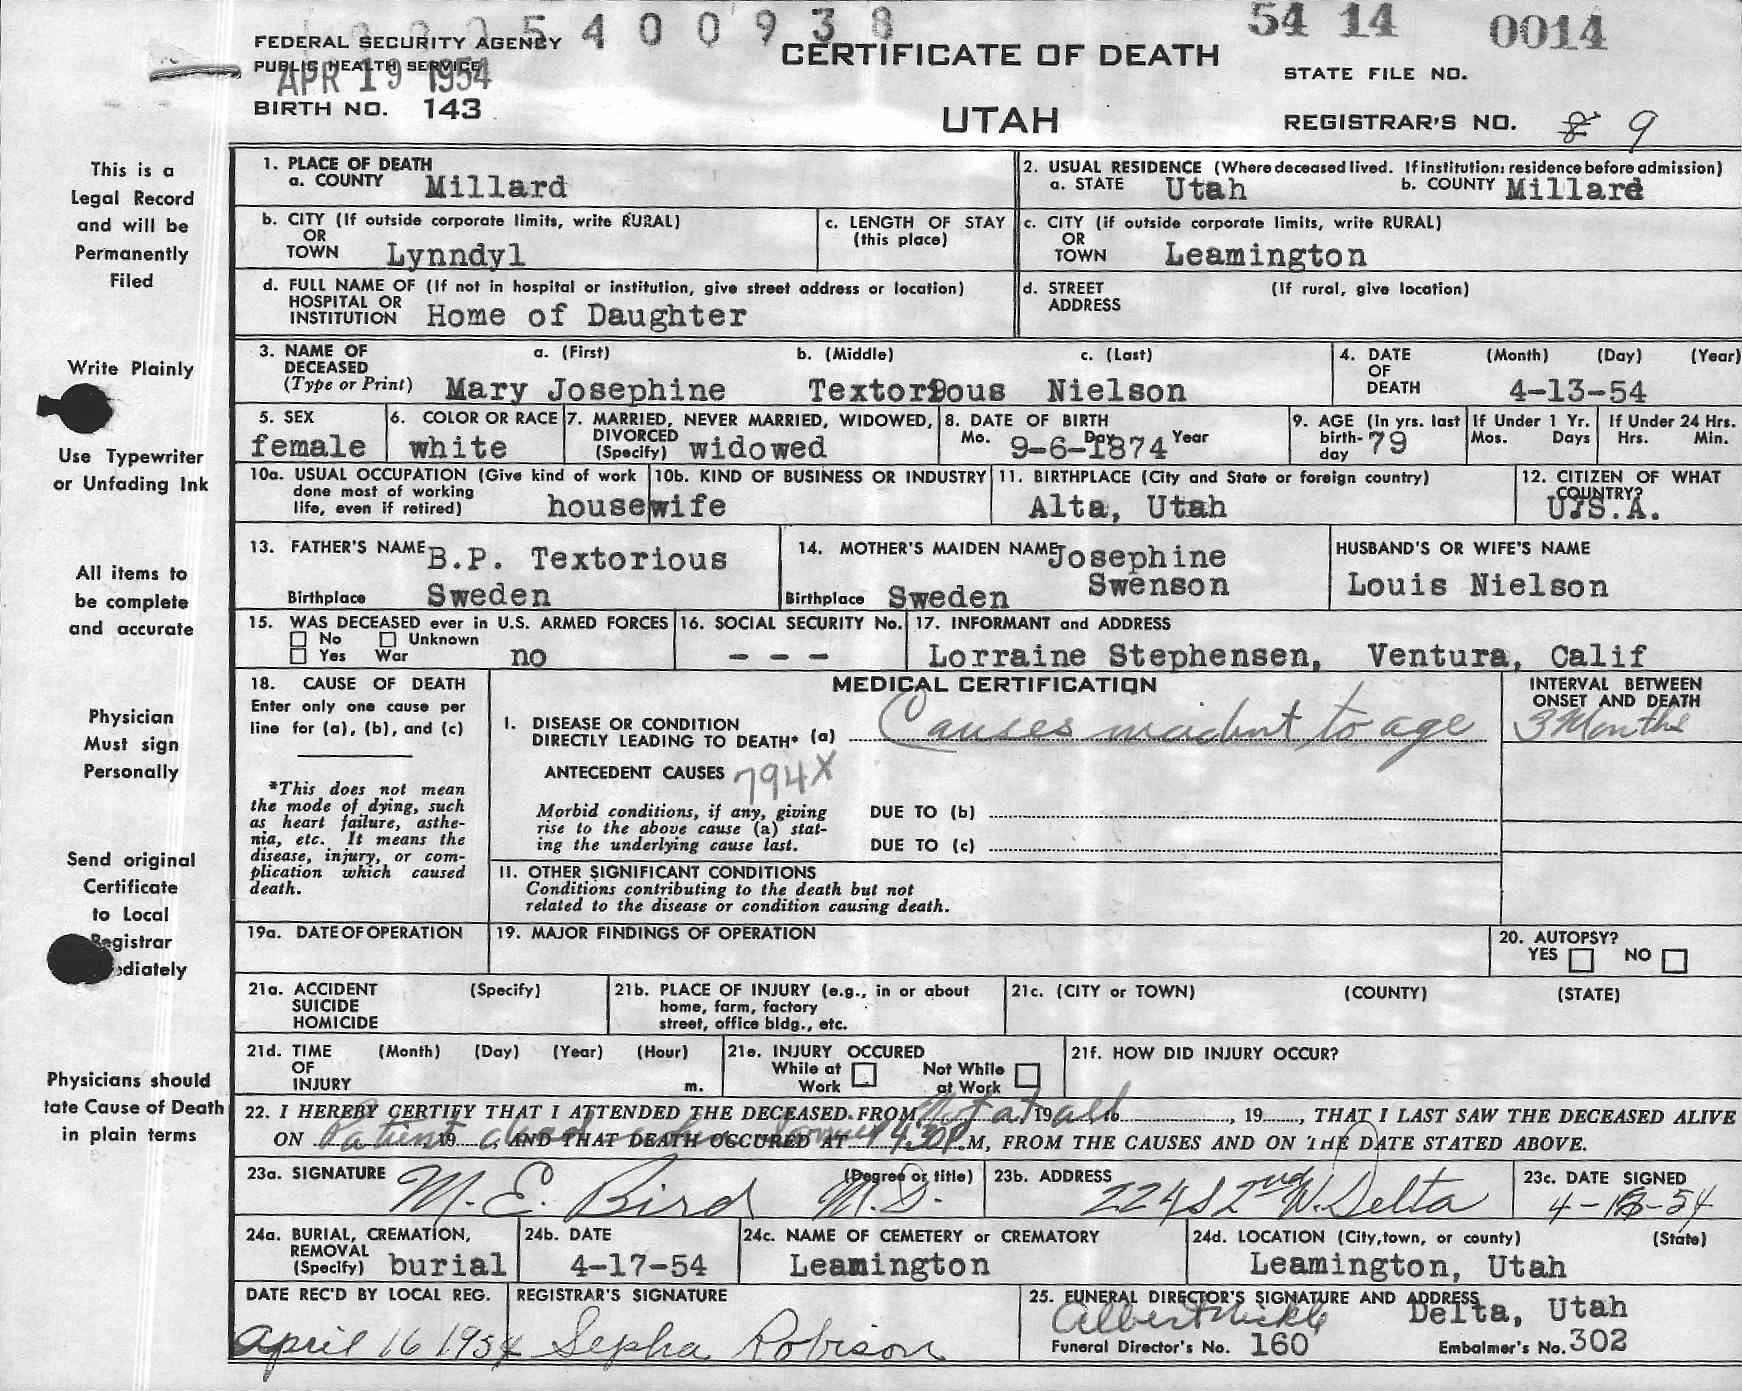 00540093 8
54 14 0014
FEDERAL SECURITY AGENCY
PUBLIC HEALTH SERVICE
APR 19 1954
CERTIFICATE OF DEATH
STATE FILE NO.
BIRTH NO. 143
UTAH
REGISTRAR'S NO. 8 9
This is a
Legal Record
and will be
Permanently
Filed
Write Plainly
Use Typewriter
or Unfading Ink
All items to
be complete
and accurate
Physician
Must sign
Personally
Send original
Certificate
to Local
Registrar
ediately
Physicians should
tate Cause of Death
in plain terms
1. PLACE OF DEATH
a. COUNTY Millard
2. USUAL RESIDENCE (Where deceased lived. If institution: residence before admission)
a. STATE Utah b. COUNTY Millard
b. CITY (If outside corporate limits, write RURAL)
OR
TOWN Lynndyl
c. LENGTH OF STAY
(this place)
c. CITY (if outside corporate limits, write RURAL)
OR
TOWN Leamington
d. FULL NAME OF (If not in hospital or institution, give street address or location)
HOSPITAL OR
INSTITUTION Home of Daughter
d. STREET (If rural, give location)
ADDRESS
3. NAME OF a. (First) b. (Middle) c. (Last)
DECEASED
(Type or Print) Mary Josephine Textorious Nielson
4. DATE (Month) (Day) (Year)
OF
DEATH 4-13-54
5. SEX
female
6. COLOR OR RACE
white
7. MARRIED, NEVER MARRIED, WIDOWED,
DIVORCED
(Specify) widowed
8. DATE OF BIRTH
Mo. Day Year
9-6-1874
9. AGE (In yrs. last
birth-
day 79
If Under 1 Yr.
Mos. Days
If Under 24 Hrs.
Hrs. Min.
10a. USUAL OCCUPATION (Give kind of work
done most of working
life, even if retired) housewife
10b. KIND OF BUSINESS OR INDUSTRY
11. BIRTHPLACE (City and State or foreign country)
Alta, Utah
12. CITIZEN OF WHAT
COUNTRY?
U.S.A.
13. FATHER'S NAME B.P. Textorious
Birthplace Sweden
14. MOTHER'S MAIDEN NAME Josephine
Swenson
Birthplace Sweden
HUSBAND'S OR WIFE'S NAME
Louis Nielson
15. WAS DECEASED ever in U.S. ARMED FORCES
No Unknown
Yes War no
16. SOCIAL SECURITY No.
- - -
17. INFORMANT and ADDRESS
Lorraine Stephensen, Ventura, Calif
18. CAUSE OF DEATH
Enter only one cause per
line for (a), (b), and (c)
*This does not mean
the mode of dying, such
as heart failure, asthe-
nia, etc. It means the
disease, injury, or com-
plication which caused
death.
MEDICAL CERTIFICATION
I. DISEASE OR CONDITION
DIRECTLY LEADING TO DEATH* (a) Causes incident to age
INTERVAL BETWEEN
ONSET AND DEATH
3 Months
ANTECEDENT CAUSES 794X
Morbid conditions, if any, giving
rise to the above cause (a) stat-
ing the underlying cause last.
DUE TO (b)
DUE TO (c)
II. OTHER SIGNIFICANT CONDITIONS
Conditions contributing to the death but not
related to the disease or condition causing death.
19a. DATE OF OPERATION
19. MAJOR FINDINGS OF OPERATION
20. AUTOPSY?
YES NO
21a. ACCIDENT (Specify)
SUICIDE
HOMICIDE
21b. PLACE OF INJURY (e.g., in or about
home, farm, factory
street, office bldg., etc.
21c. (CITY or TOWN) (COUNTY) (STATE)
21d. TIME (Month) (Day) (Year) (Hour)
OF
INJURY m.
21e. INJURY OCCURED
While at Not While
Work at Work
21f. HOW DID INJURY OCCUR?
22. I HEREBY CERTIFY THAT I ATTENDED THE DECEASED FROM Not at all 19 to 19, THAT I LAST SAW THE DECEASED ALIVE
ON Patient dead when 19, AND THAT DEATH OCCURED AT 4:30P M, FROM THE CAUSES AND ON THE DATE STATED ABOVE.
23a. SIGNATURE (Degree or title)
M. E. Bird M.D.
23b. ADDRESS
224 S 2nd W. Delta
23c. DATE SIGNED
4-16-54
24a. BURIAL, CREMATION,
REMOVAL
(Specify) burial
24b. DATE
4-17-54
24c. NAME OF CEMETERY or CREMATORY
Leamington
24d. LOCATION (City, town, or county) (State)
Leamington, Utah
DATE REC'D BY LOCAL REG.
April 16 1954
REGISTRAR'S SIGNATURE
Sepha Robison
25. FUNERAL DIRECTOR'S SIGNATURE AND ADDRESS
Albert Nickle Delta, Utah
Funeral Director's No. 160 Embalmer's No. 302